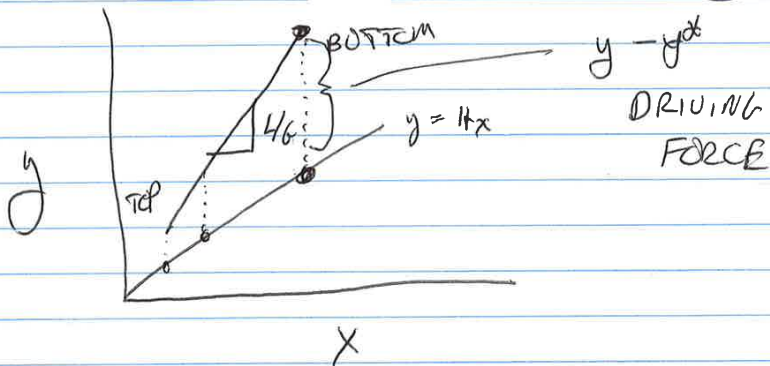 BOTTOM
y - y*
DRIVING
FORCE
L/G
y = Hx
TOP
y
x